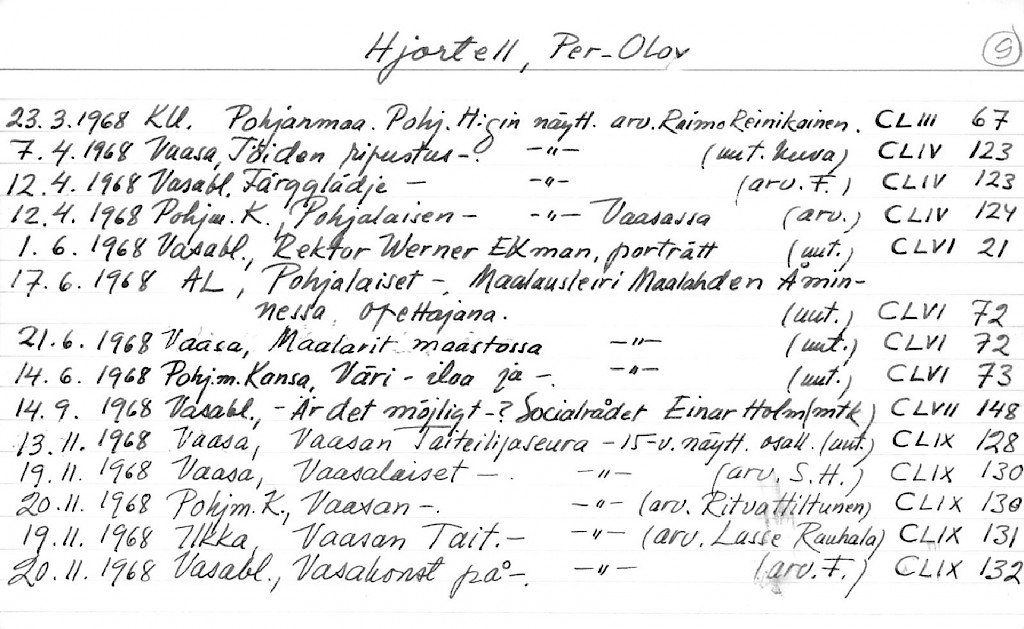 Hjortell, Per-Olov 9
23.3.1968 KU. Pohjanmaa. Pohj. H:gin näytt. arv. Raimo Reinikainen. CLIII 67
7.4.1968 Vaasa, Töiden ripustus -. -"- (uut. kuva) CLIV 123
12.4.1968 Vasabl. Färgglädje - -"- (arv. F.) CLIV 123
12.4.1968 Pohjm. K., Pohjalaisen - -"- Vaasassa (arv.) CLIV 124
1.6.1968 Vasabl., Rektor Werner Ekman, porträtt (uut.) CLVI 21
17.6.1968 AL, Pohjalaiset -, Maalausleiri Maalahden Åmin-
nessa, opettajana. (uut.) CLVI 72
21.6.1968 Vaasa, Maalarit maastossa -"- (uut.) CLVI 72
14.6.1968 Pohjm. Kansa, Väri-iloa ja -. -"- (uut.) CLVI 73
14.9.1968 Vasabl., - Är det möjligt -? Socialrådet Einar Holm (mtk) CLVII 148
13.11.1968 Vaasa, Vaasan Taiteilijaseura - 15-v. näytt. osall. (uut.) CLIX 128
19.11.1968 Vaasa, Vaasalaiset -. -"- (arv. S.H.) CLIX 130
20.11.1968 Pohjm. K., Vaasan -. -"- (arv. Ritva Hiltunen) CLIX 130
19.11.1968 Ilkka, Vaasan Tait. - -"- (arv. Lasse Rauhala) CLIX 131
20.11.1968 Vasabl., Vasakonst på -. -"- (arv. F.) CLIX 132